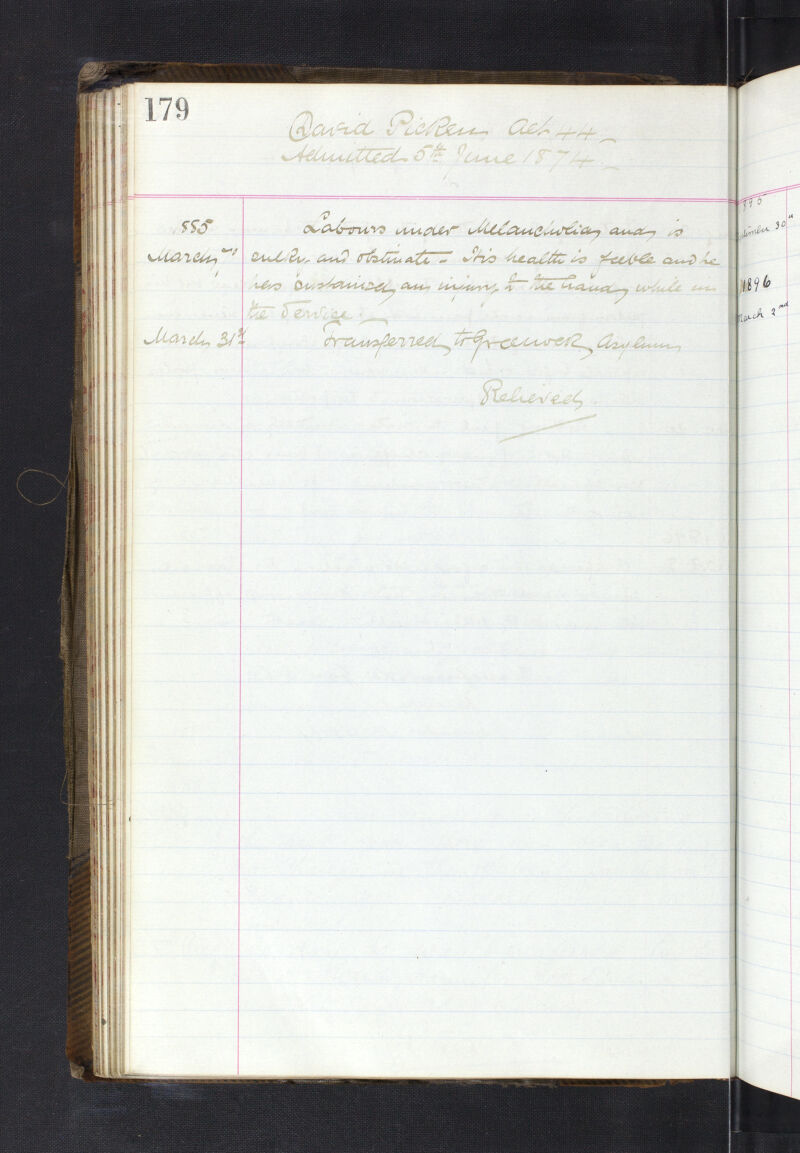 179
David Picken Aet 44
Admitted 5th June 1874
885
Labours under Melancholia and is
March
sulky and obstinate - His health is feeble and he
has sustained an injury to the hand while in
the Service.
March 31st
Transferred to Greenock Asylum
Relieved
895
30th
1896
March 2nd